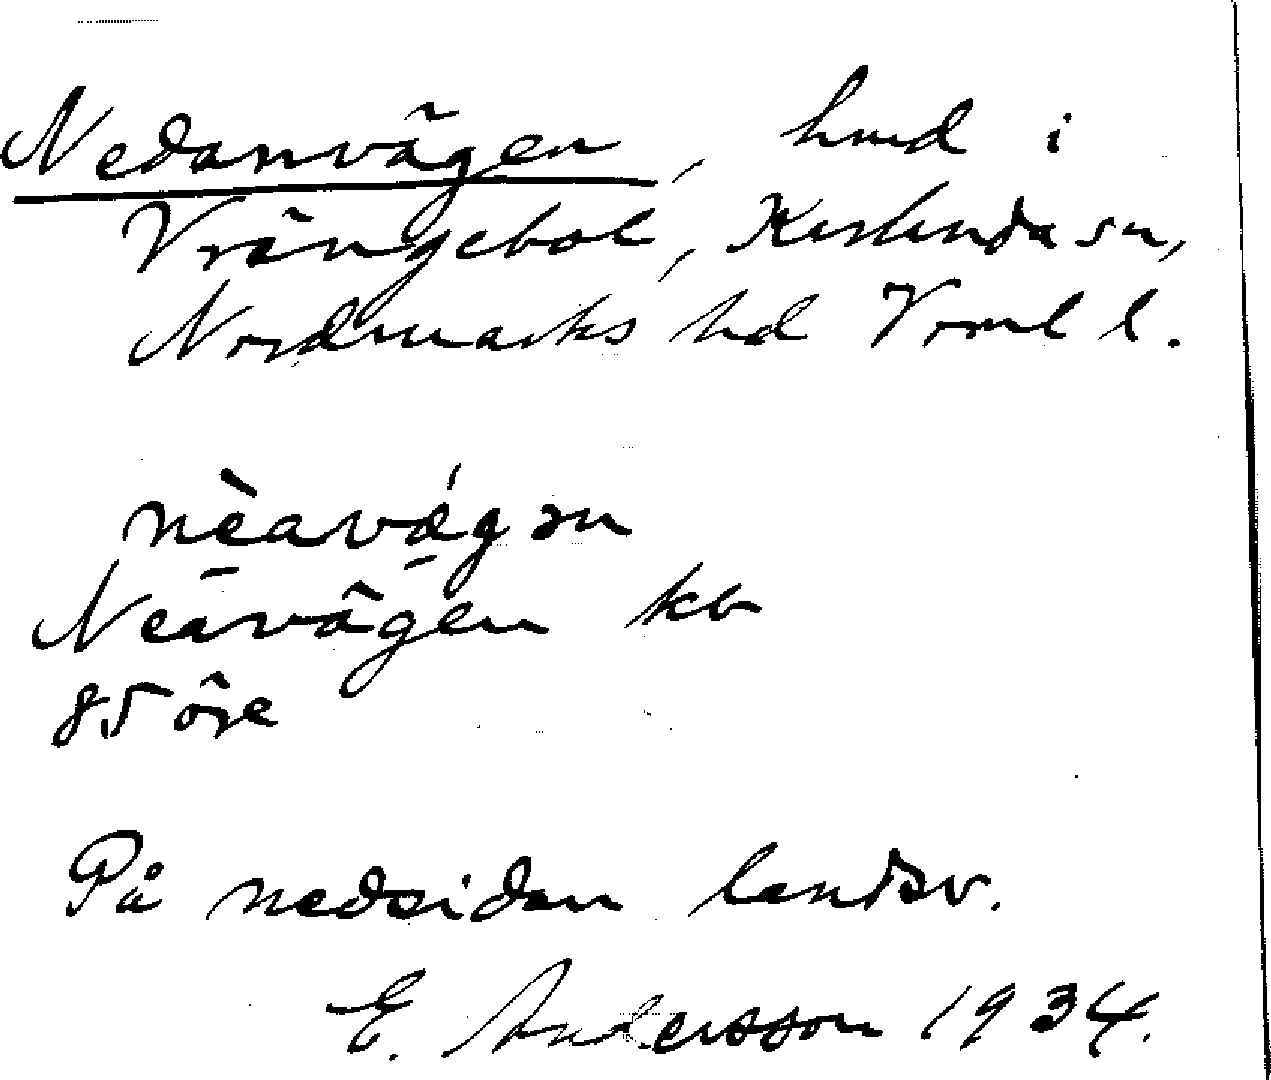 Nedanvägen, hmd i
Vrängebol, Karlanda sn,
Nordmarks hd Vrml l.
nèavǽgən
Neavägen kb
85 öre
På nedsidan landsv.
E. Andersson 1934.